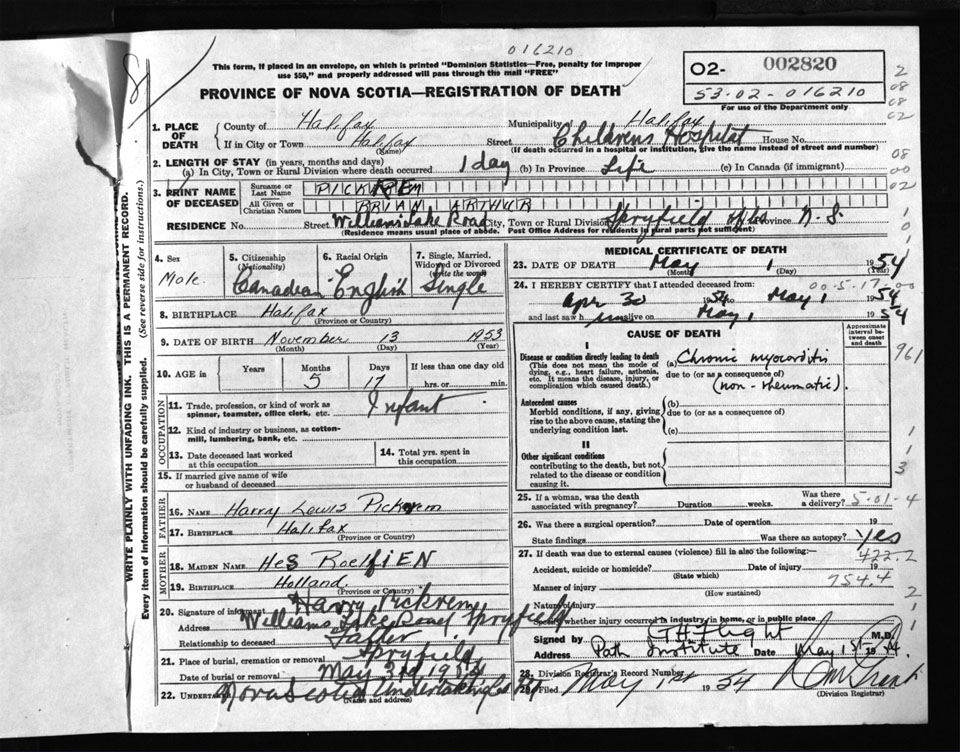 016210
This form, if placed in an envelope, on which is printed "Dominion Statistics—Free, penalty for improper
use $50," and properly addressed will pass through the mail "FREE"
PROVINCE OF NOVA SCOTIA—REGISTRATION OF DEATH
O2- 002820
53-02-016210
For use of the Department only
1. PLACE OF DEATH
County of Halifax Municipality of Halifax
If in City or Town Halifax Street Childrens Hospital House No.
(Name) (If death occurred in a hospital or institution, give the name instead of street and number)
2. LENGTH OF STAY (in years, months and days)
(a) In City, Town or Rural Division where death occurred 1 day (b) In Province Life (c) In Canada (if immigrant)
3. PRINT NAME OF DECEASED
Surname or Last Name PICKREM
All Given or Christian Names BRIAN ARTHUR
RESIDENCE No. Street Williams Lake Road City, Town or Rural Division Spryfield Province N.S.
(Residence means usual place of abode. Post Office Address for residents in rural parts not sufficient)
4. Sex Male
5. Citizenship (Nationality) Canadian
6. Racial Origin English
7. Single, Married, Widowed or Divorced (write the word) Single
8. BIRTHPLACE Halifax
(Province or Country)
9. DATE OF BIRTH November 13 1953
(Month) (Day) (Year)
10. AGE in Years Months 5 Days 17 If less than one day old hrs. or min.
OCCUPATION
11. Trade, profession, or kind of work as spinner, teamster, office clerk, etc. Infant
12. Kind of industry or business, as cotton-mill, lumbering, bank, etc.
13. Date deceased last worked at this occupation
14. Total yrs. spent in this occupation
15. If married give name of wife or husband of deceased
FATHER
16. NAME Harry Lewis Pickrem
17. BIRTHPLACE Halifax
(Province or Country)
MOTHER
18. MAIDEN NAME
19. BIRTHPLACE Holland
(Province or Country)
20. Signature of informant Harry Pickrem
Address Williams Lake Road Spryfield
Relationship to deceased Father
21. Place of burial, cremation or removal Spryfield
Date of burial or removal May 3rd 1954
22. Undertaker Nova Scotia Undertaking Co
(Name and address)
MEDICAL CERTIFICATE OF DEATH
23. DATE OF DEATH May 1 1954
(Month) (Day) (Year)
24. I HEREBY CERTIFY that I attended deceased from: 00-5-17
Apr 30 1954 to May 1 1954
and last saw h im alive on May 1 1954
CAUSE OF DEATH
Approximate interval between onset and death
I
Disease or condition directly leading to death
(This does not mean the mode of dying, e.g., heart failure, asthenia, etc. It means the disease, injury, or complication which caused death.)
(a) Chronic myocarditis
due to (or as a consequence of)
(non-rheumatic).
Antecedent causes
Morbid conditions, if any, giving rise to the above cause, stating the underlying condition last.
(b)
due to (or as a consequence of)
(c)
II
Other significant conditions
contributing to the death, but not related to the disease or condition causing it.
25. If a woman, was the death associated with pregnancy? Duration weeks. Was there a delivery? 5-01-4
26. Was there a surgical operation? Date of operation 19
State findings Was there an autopsy? Yes
27. If death was due to external causes (violence) fill in also the following:— 422.2
Accident, suicide or homicide? Date of injury 19
(State which) 754.4
Manner of injury
(How sustained)
Nature of injury
Specify whether injury occurred in industry, in home, or in public place
Signed by M.D.
Address Path Institute Date May 1st 1954
28. Division Registrar's Record Number
29. Filed May 1st 1954
(Division Registrar)
WRITE PLAINLY WITH UNFADING INK. THIS IS A PERMANENT RECORD.
Every item of information should be carefully supplied. (See reverse side for instructions.)
2
08
08
02
08
00
02
961
1
3
2
1